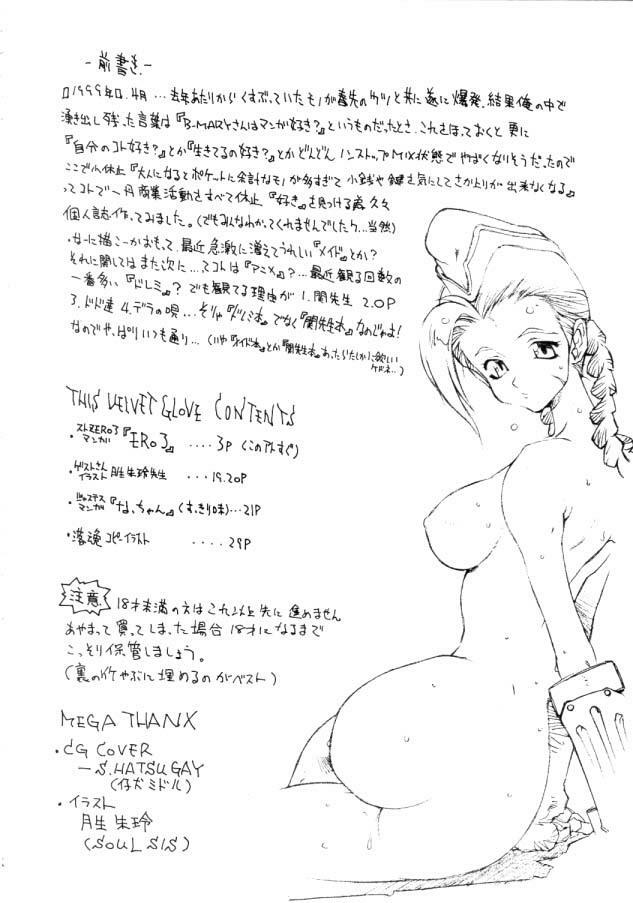 -前書き-
□1999年□.4月…去年あたりからくすぶっていたモノが
『B-MARYさんはマンガ好き?』というものだったとき.これさほっておくと更に
『自分のコト好き?』とか『生きてるの好き?』とかどんどんノンストップMIX状態でやばくなりそうだったので
ここで小休止『大人になるとポケットに余計なモノが多すぎて小銭や鍵を気にしてさか上りが出来なくなる』
ってコトで一月商業活動をすべて休止『好き』を見つける為久々
個人誌作ってみました。(でもみんなわかってくれませんでしたケ…当然)
最近急激に増えてうれしい『メイド』とか?
それに関してはまた次に…てコトは『アニメ』?…最近観る回数の
一番多い『ドレミ』?でも観てる理由が1.関先生 2.OP
3.ドド達 4.デラの唄…そりゃ『ドレミ本』でなく『関先生本』なのじゃよ!
なのでやっぱりいつも通り…(いや『メイド本』とか『関先生本』あったらたしかに欲しい
ケドネ…)
THIS VELVET GLOVE CONTENTS
・ストZERO3マンガ『ERO3』....3P(このアトすぐ)
・ゲストさんイラスト月生朱玲先生...19.20P
・ジャスティスマンガ『なっちゃん』(すっきり味)…21P
・落魂コピーイラスト....29P
注意
18才未満の方はこれ以上先に進めません
あやまって買ってしまった場合18才になるまで
こっそり保管しましょう。
(裏のイケやぶに埋めるのがベスト)
MEGA THANX
・CG COVER
—S.HATSUGAY
(仔犬ミドル)
・イラスト
月生 朱玲
(SOUL SIS)